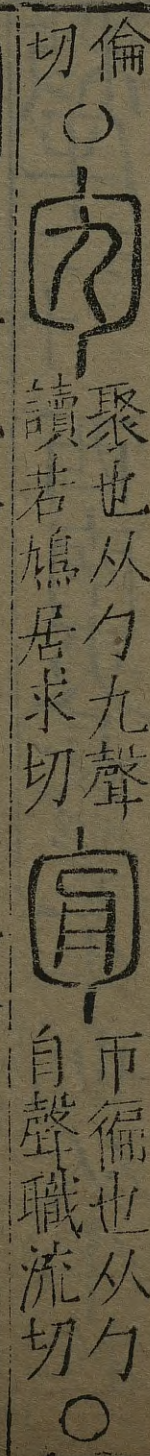 倫
切
○
勼
聚也从勹九聲
讀若鳩居求切
匊
帀徧也从勹
自聲職流切
○